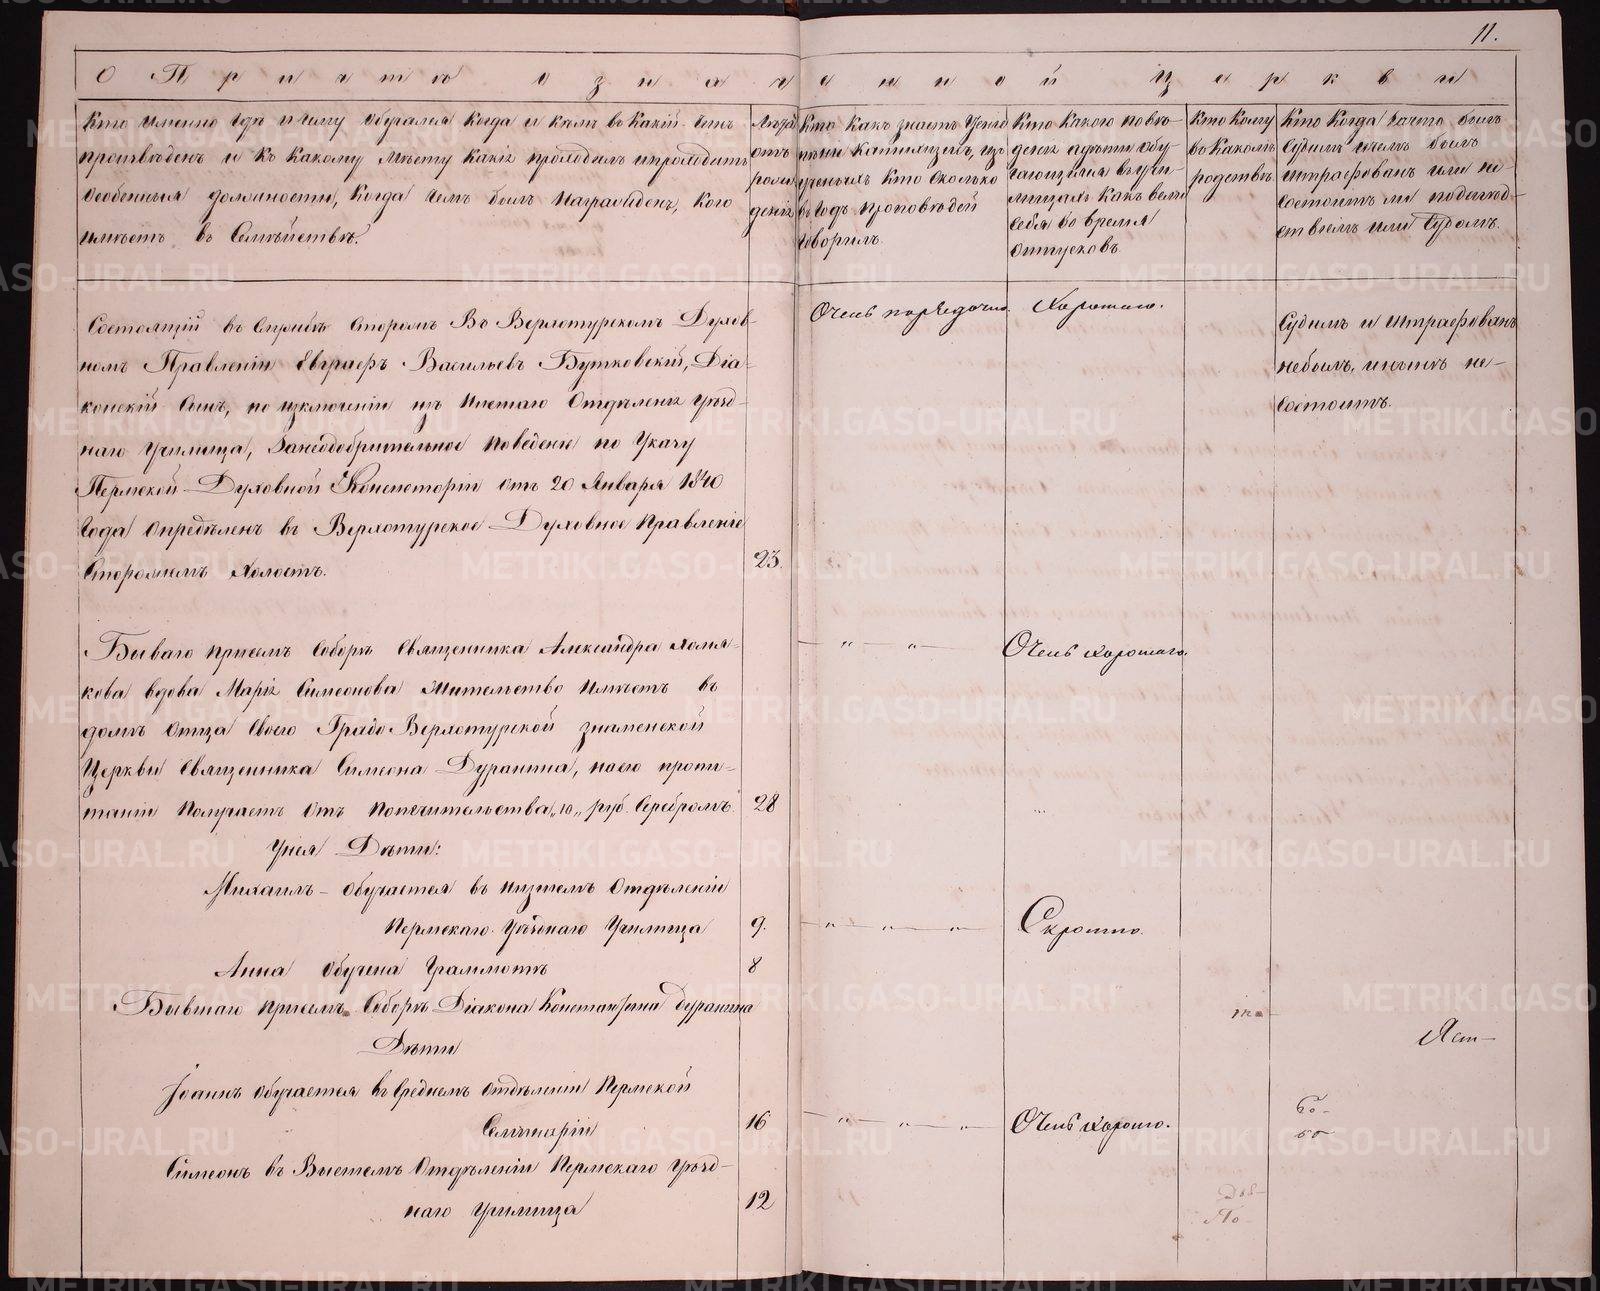 11.
О Причтѣ означенной Церкви
Кто именно гдѣ и чему обучался когда и кѣмъ въ какій чинъ
произведенъ и къ какому мѣсту какія проходилъ и проходитъ
особенныя должности, когда чемъ былъ награжденъ, кого
имѣетъ въ Семѣйствѣ.
Лѣта
отъ
рож
денія
Кто какъ знаетъ
катихизисъ, изъ
ученыхъ кто сколько
въ годъ проповѣдей
говорилъ.
Кто какого пове-
денія и дѣти обу-
чающіяся въ учи-
лищахъ какъ вели
себя во время
отпусковъ
Кто кому
въ какомъ
родствѣ
Кто когда за что былъ
судимъ и чемъ былъ
штрафованъ или не
состоитъ ли под
слѣдствіемъ или Судомъ.
Состоящій въ Службѣ Сторожъ Во Верхотурскомъ Духов-
номъ Правленіи Евграфъ Васильевъ Бутковскій, Діа-
конскій Сынъ, по изключеніи изъ Низшаго Отдѣленія Уѣзд-
наго Училища, за неодобрительное поведеніе по Указу
Пермской Духовной Консисторіи отъ 20 Января 1840
Года опредѣленъ въ Верхотурское Духовное Правленіе
Сторожемъ Холостъ.
23.
Очень порядочно.
Хорошаго.
Судимъ и штрафованъ
небылъ, и нынѣ не-
состоитъ.
Бываго при семъ Соборѣ Священника Александра Холмя-
кова вдова Марія Симеонова жительство имѣетъ въ
домѣ отца своего Градо Верхотурской знаменской
Церкви Священника Симеона Дуранина, на его пропи-
таніи получаетъ отъ попечительства „10„ руб. Серебромъ.
28
— „ — „ —
Очень хорошаго.
У нея Дѣти:
Михаилъ – обучается въ низшемъ Отдѣленіи
Пермскаго Уѣзднаго Училища
9.
— „ — „ — „ —
Скромно.
Анна обучена Граммотѣ
8
Бывшаго при семъ Соборѣ Діакона Константина Дуранина
Дѣти
Іоаннъ обучается въ среднемъ отдѣленіи Пермской
Семинаріи
16
— „ — „ — „ —
Очень хорошо.
Симеонъ въ Высшемъ Отдѣленіи Пермскаго Уѣзд-
наго Училища
12